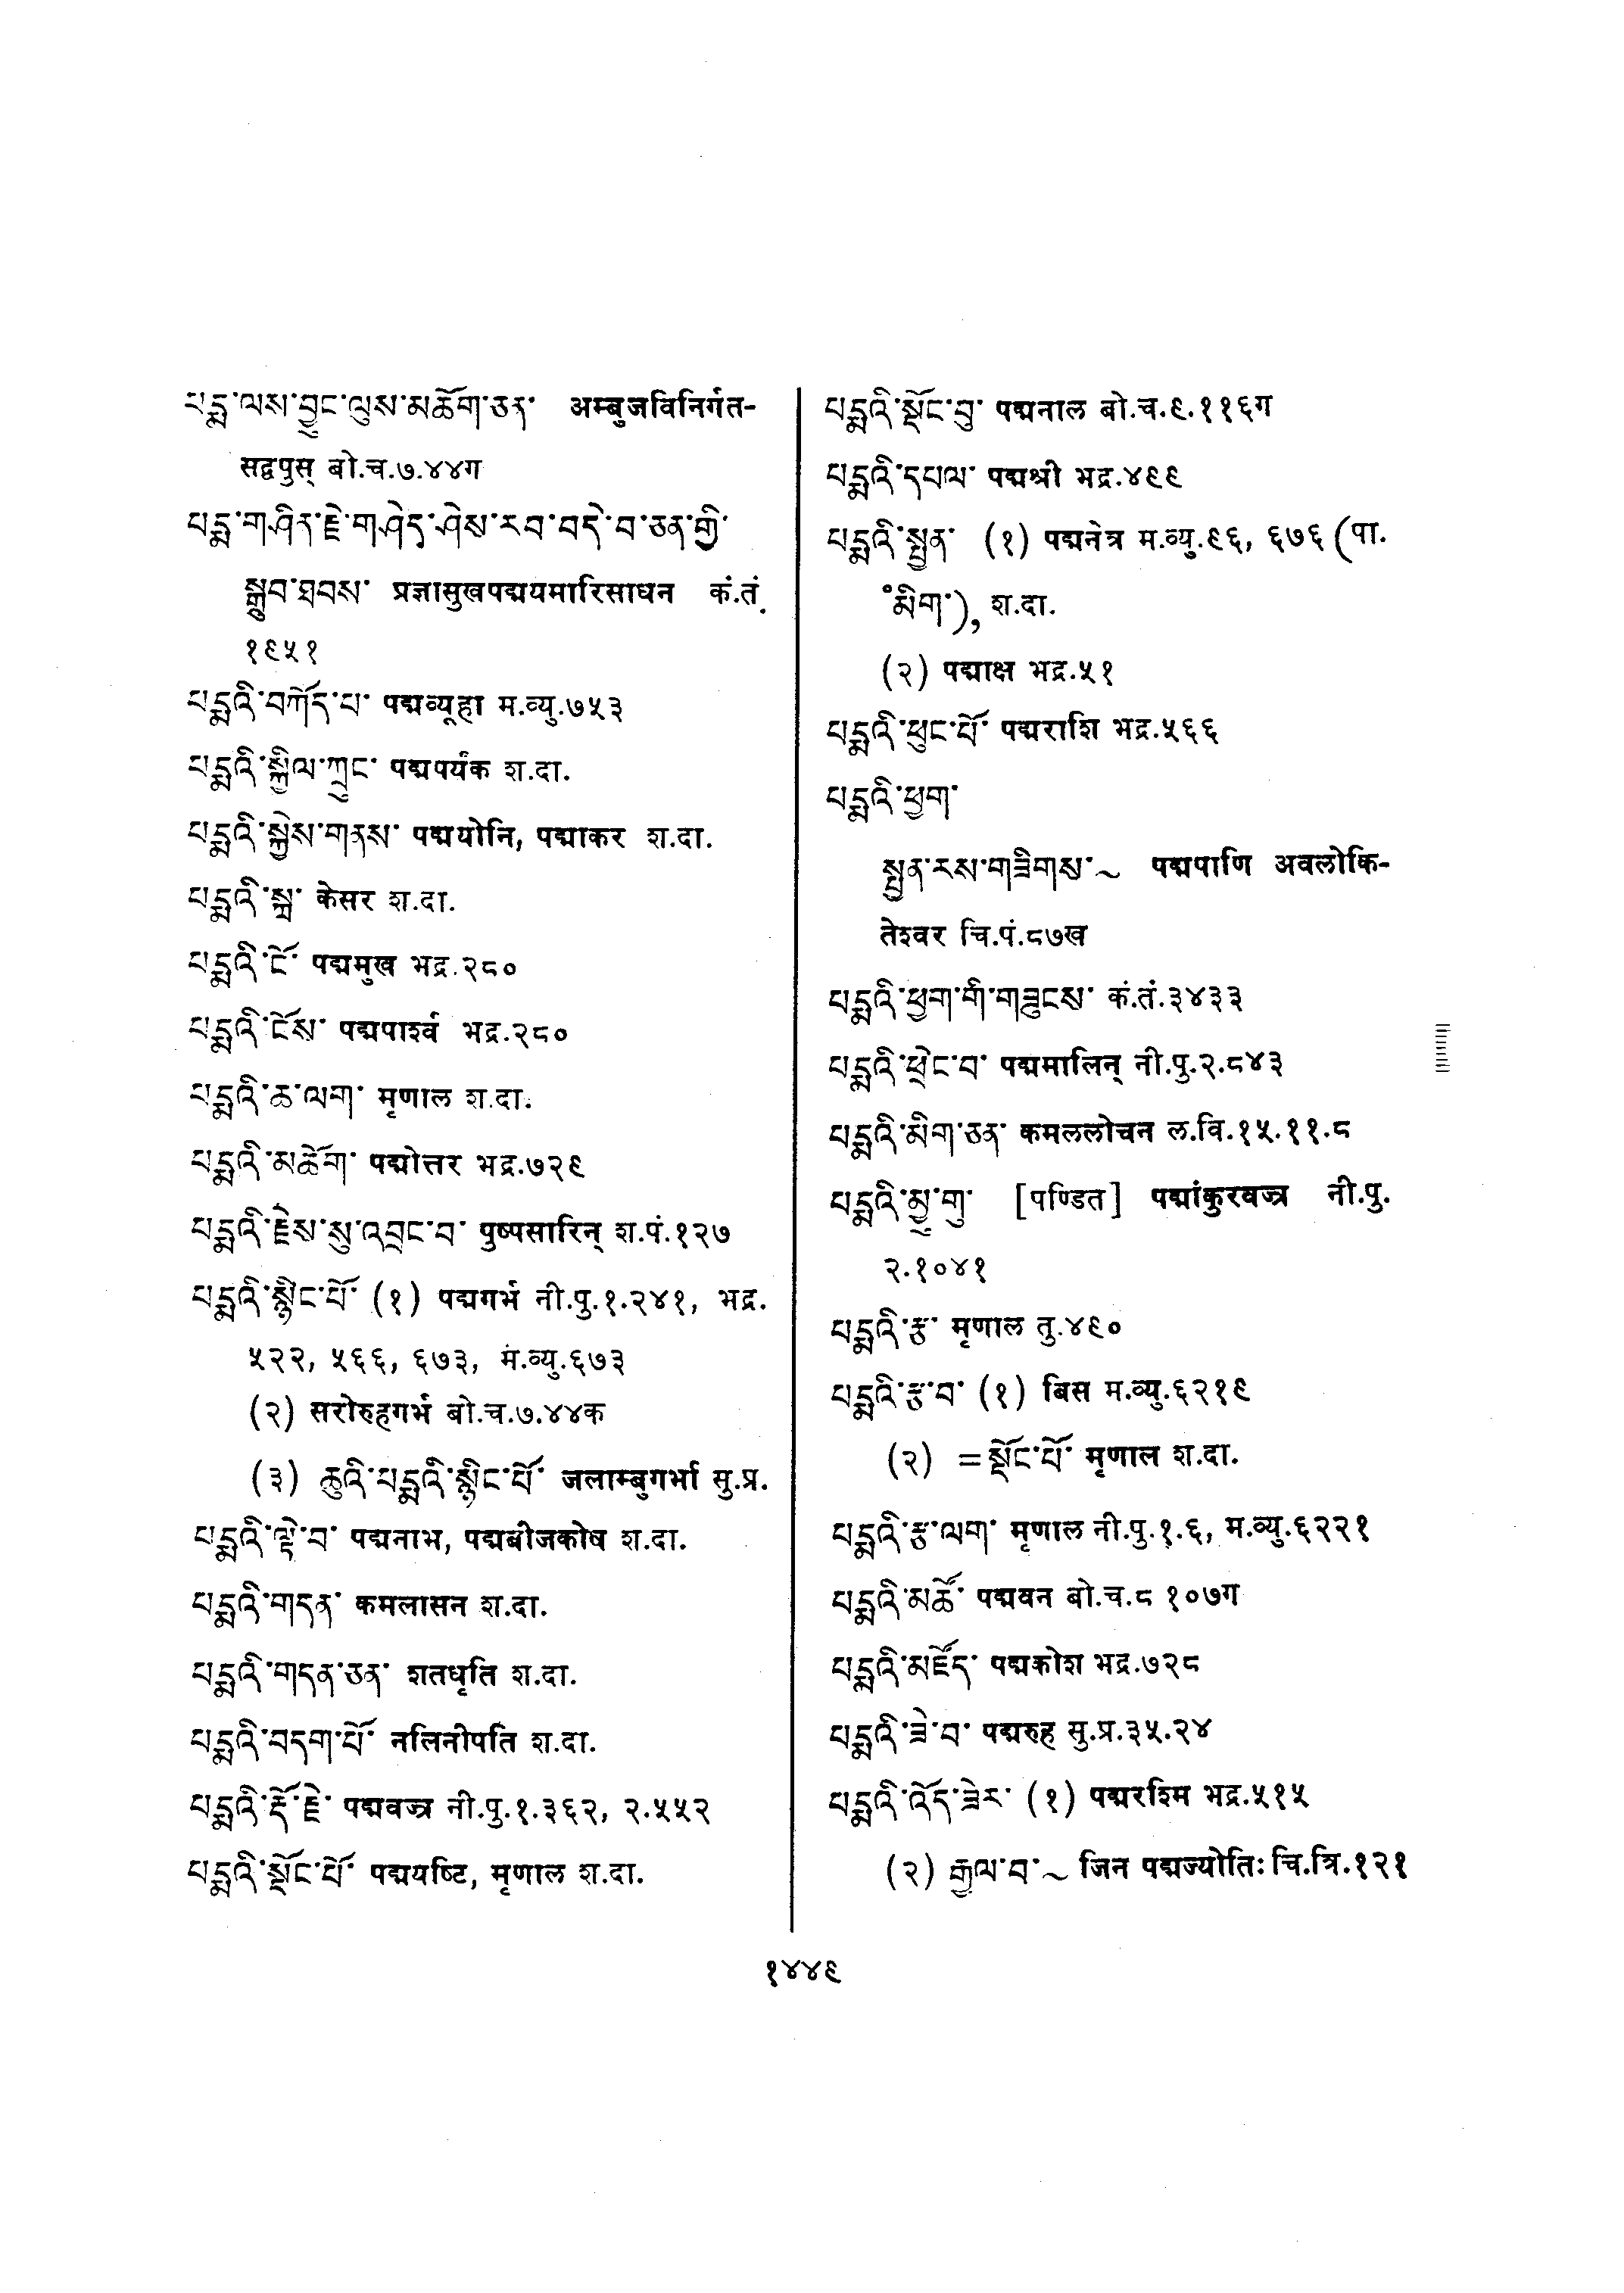 པདྨ་ལས་བྱུང་ལུས་མཆོག་ཅན་ अम्बुजविनिर्गत-
सद्वपुस् बो.च.७.४४ग
པདྨ་གཤིན་རྗེ་གཤེད་ཤེས་རབ་བདེ་བ་ཅན་གྱི་
སྒྲུབ་ཐབས་ प्रज्ञासुखपद्मयमारिसाधन कं.तं.
१९५१
པདྨའི་བཀོད་པ་ पद्मव्यूहा म.व्यु.७५३
པདྨའི་སྐྱིལ་ཀྲུང་ पद्मपर्यंक श.दा.
པདྨའི་སྐྱེས་གནས་ पद्मयोनि, पद्माकर श.दा.
པདྨའི་སྐྲ་ केसर श.दा.
པདྨའི་ངོ་ पद्ममुख भद्र.२८०
པདྨའི་ངོས་ पद्मपार्श्व भद्र.२८०
པདྨའི་ཆ་ལག་ मृणाल श.दा.
པདྨའི་མཆོག་ पद्मोत्तर भद्र.७२९
པདྨའི་རྗེས་སུ་འབྲང་བ་ पुष्पसारिन् श.पं.१२७
པདྨའི་སྙིང་པོ་ (१) पद्मगर्भ नी.पु.१.२४१, भद्र.
५२२, ५६६, ६७३, म.व्यु.६७३
(२) सरोरुहगर्भ बो.च.७.४४क
(३) ཆུའི་པདྨའི་སྙིང་པོ་ जलाम्बुगर्भा सु.प्र.
པདྨའི་ལྟེ་བ་ पद्मनाभ, पद्मबीजकोष श.दा.
པདྨའི་གདན་ कमलासन श.दा.
པདྨའི་གདན་ཅན་ शतधृति श.दा.
པདྨའི་བདག་པོ་ नलिनीपति श.दा.
པདྨའི་རྡོ་རྗེ་ पद्मवज्र नी.पु.१.३६२, २.५५२
པདྨའི་སྡོང་པོ་ पद्मयष्टि, मृणाल श.दा.
པདྨའི་སྡོང་བུ་ पद्मनाल बो.च.९.११६ग
པདྨའི་དཔལ་ पद्मश्री भद्र.४९९
པདྨའི་སྤྱན་ (१) पद्मनेत्र म.व्यु.९६, ६७६ (पा.
°མིག་), श.दा.
(२) पद्माक्ष भद्र.५१
པདྨའི་ཕུང་པོ་ पद्मराशि भद्र.५६६
པདྨའི་ཕྱག་
སྤྱན་རས་གཟིགས་~ पद्मपाणि अवलोकि-
तेश्वर चि.पं.८७ख
པདྨའི་ཕྱག་གི་གཟུངས་ कं.तं.३४३३
པདྨའི་ཕྲེང་བ་ पद्ममालिन् नी.पु.२.८४३
པདྨའི་མིག་ཅན་ कमललोचन ल.वि.१५.११.८
པདྨའི་མྱུ་གུ་ [पण्डित] पद्मांकुरवज्र नी.पु.
२.१०४१
པདྨའི་རྩ་ मृणाल तु.४९०
པདྨའི་རྩ་བ་ (१) बिस म.व्यु.६२१९
(२) =སྡོང་པོ་ मृणाल श.दा.
པདྨའི་རྩ་ལག་ मृणाल नी.पु.१.६, म.व्यु.६२२१
པདྨའི་མཚོ་ पद्मवन बो.च.८ १०७ग
པདྨའི་མཛོད་ पद्मकोश भद्र.७२८
པདྨའི་ཟེ་བ་ पद्मरुह सु.प्र.३५.२४
པདྨའི་འོད་ཟེར་ (१) पद्मरश्मि भद्र.५१५
(२) རྒྱལ་བ་~ जिन पद्मज्योतिः चि.त्रि.१२१
१४४९